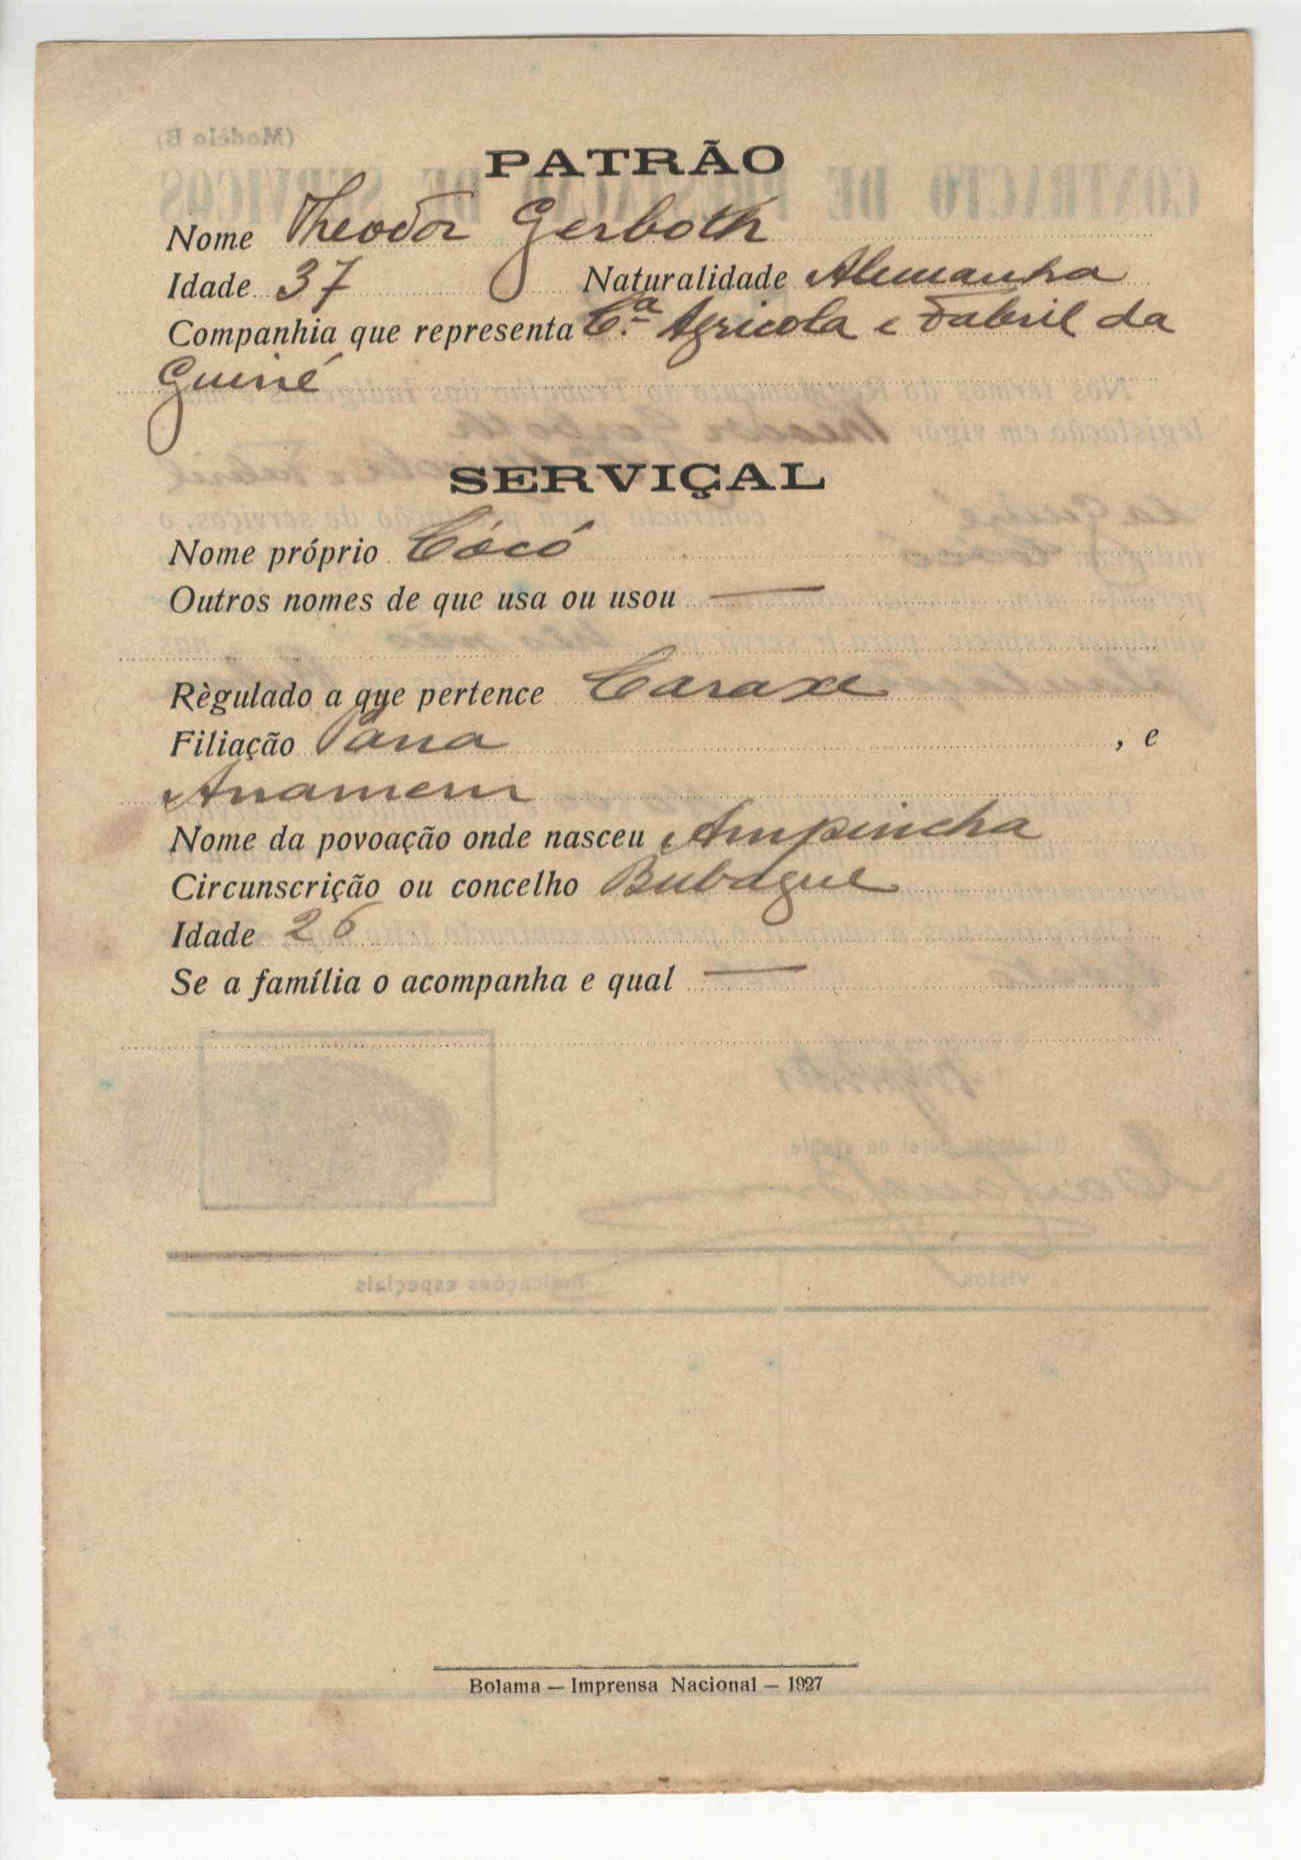 PATRÃO
Nome Theodor Gerboth
Idade 37 Naturalidade Alemanha
Companhia que representa C.ª Agricola e Fabril da
Guiné
SERVIÇAL
Nome próprio Cócó
Outros nomes de que usa ou usou —
Règulado a que pertence Caraxe
Filiação Pana , e
Anamem
Nome da povoação onde nasceu Ampincha
Circunscrição ou concelho Bubaque
Idade 26
Se a família o acompanha e qual —
Bolama — Imprensa Nacional — 1927